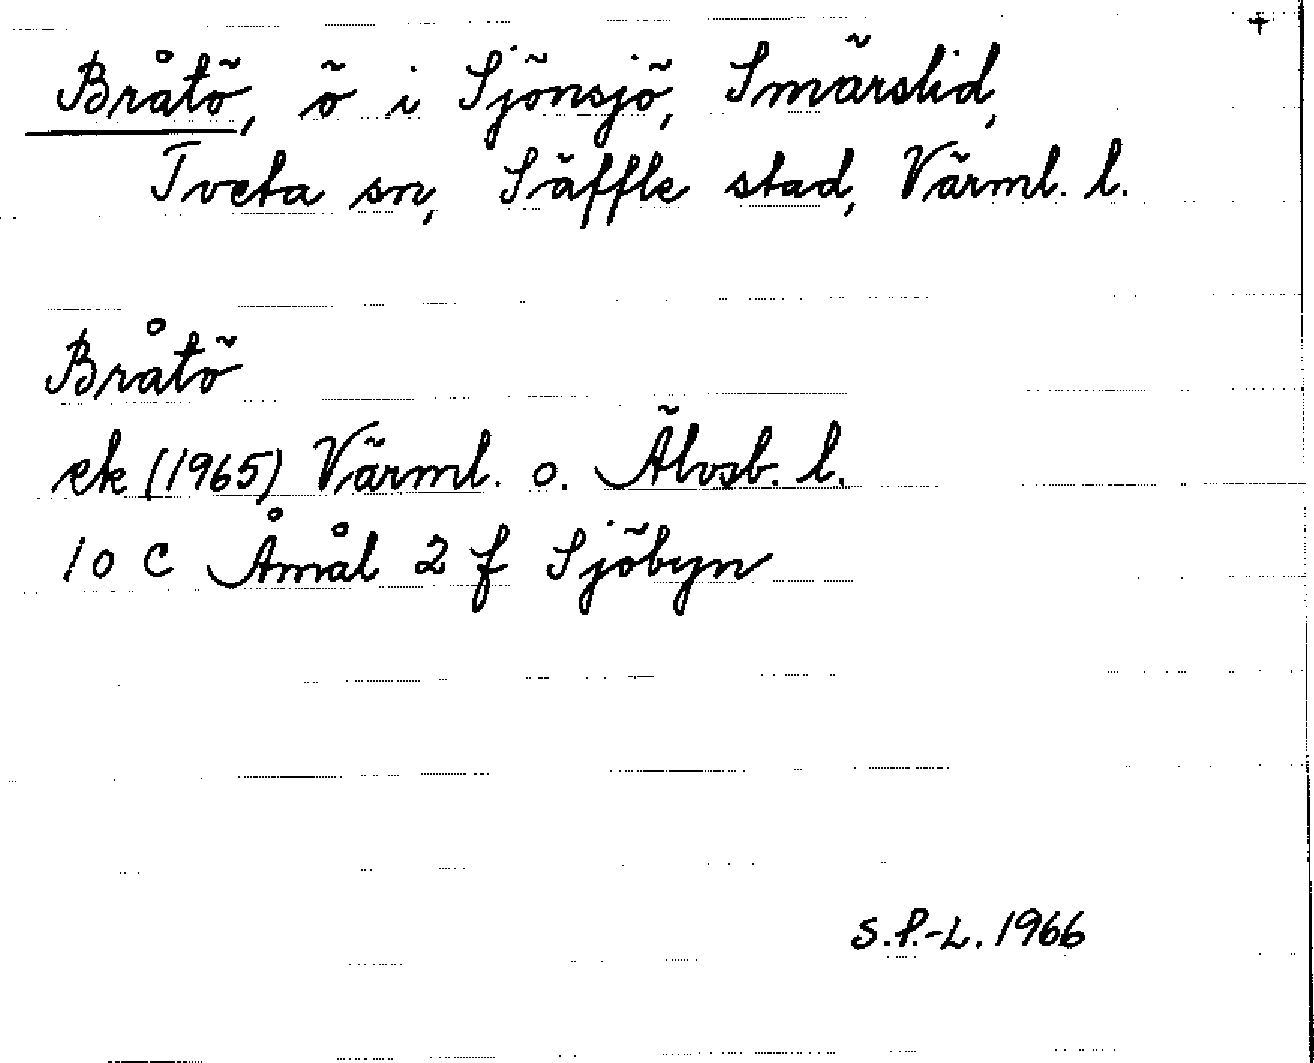 +
Bråtö, ö i Sjönsjö, Smärslid,
Tveta sn, Säffle stad, Värml. l.
Bråtö
ek (1965) Värml. o. Älvsb. l.
10 C Åmål 2 f Sjöbyn
S.P.-L. 1966